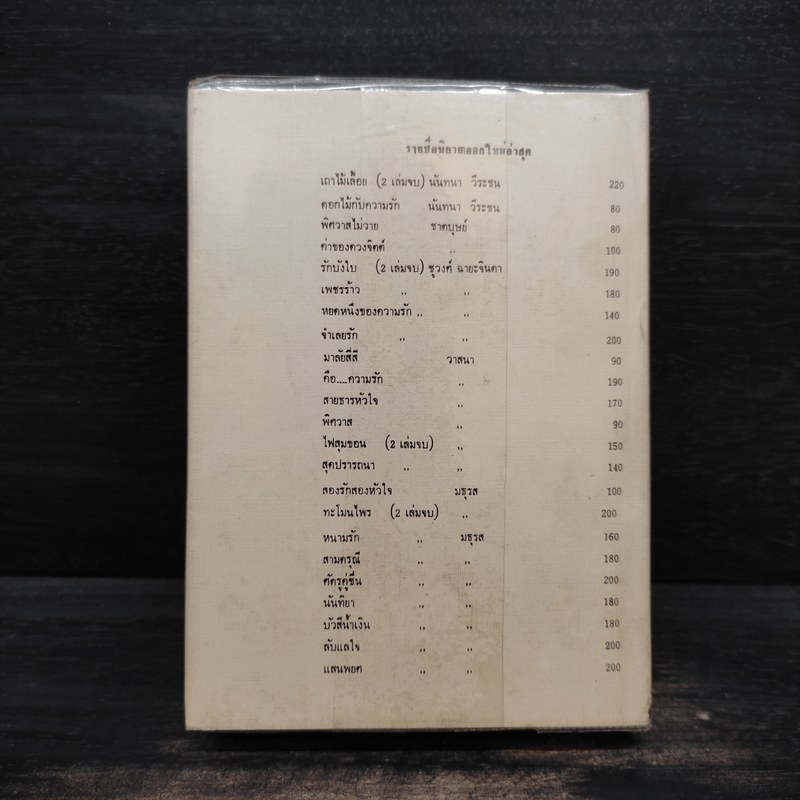 รายชื่อนิยายออกใหม่ล่าสุด
เถาไม้เลื้อย (2 เล่มจบ) นันทนา วีระชน 220
ดอกไม้กับความรัก นันทนา วีระชน 80
พิศวาสไม่วาย ชาตบุษย์ 80
ค่าของดวงจิตต์ ,, 100
รักบังใบ (2 เล่มจบ) ชูวงศ์ ฉายะจินดา 190
เพชรร้าว ,, ,, 180
หยดหนึ่งของความรัก ,, ,, 140
จำเลยรัก ,, ,, 200
มาลัยสี่สี วาสนา 90
คือ....ความรัก ,, 190
สายธารหัวใจ ,, 170
พิศวาส ,, 90
ไฟสุมขอน (2 เล่มจบ) ,, 150
สุดปรารถนา ,, ,, 140
สองรักสองหัวใจ มธุรส 100
ทะโมนไพร (2 เล่มจบ) ,, 200
หนามรัก ,, มธุรส 160
สามดรุณี ,, ,, 180
ศัตรูคู่ชื่น ,, ,, 200
นันทิยา ,, ,, 180
บัวสีน้ำเงิน ,, ,, 180
ลับแลใจ ,, ,, 200
แสนพยศ ,, ,, 200